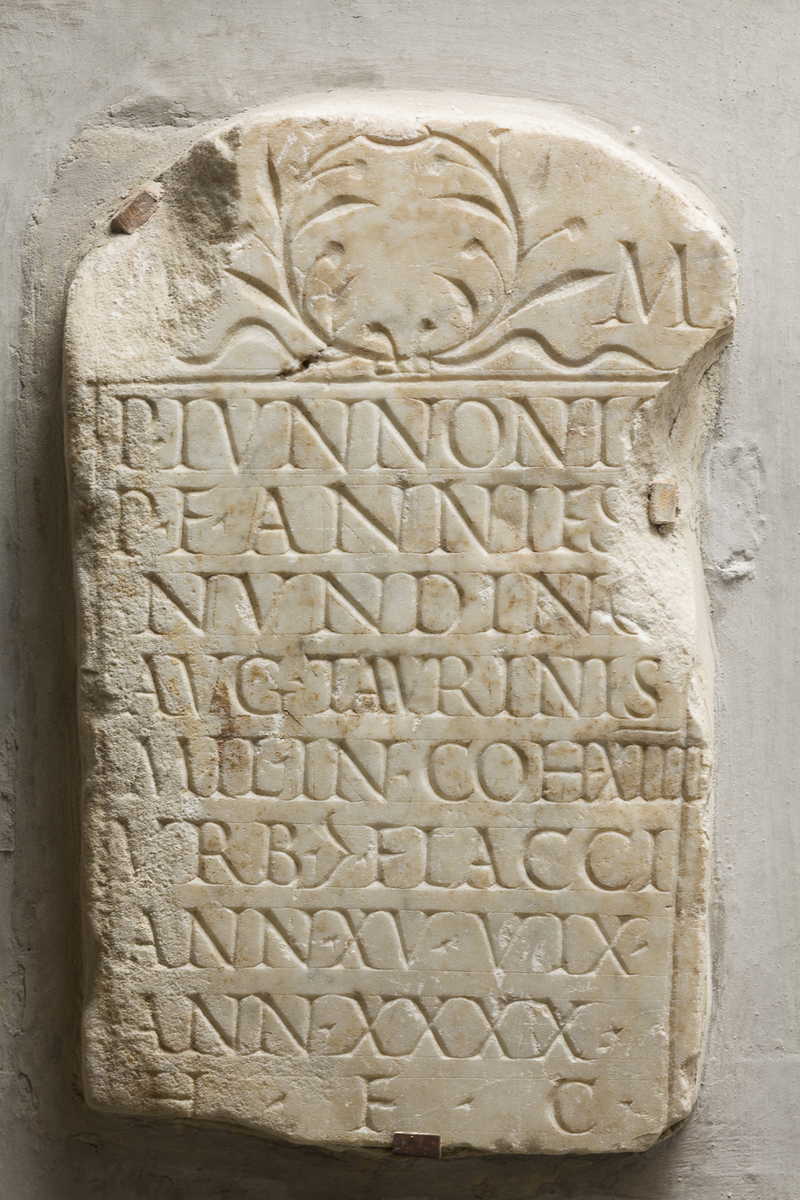 M
P·IVNNONI
P·F·ANNIES
NVNDIN
AVG·TAVRINIS
MIL·IN·COH·XIIII
VRB·>·FLACCI
ANN·XV·VIX·
ANN·XXXX·
H·F·C·